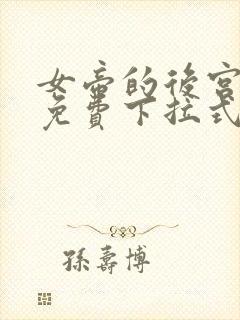 女帝的後宮
免費下拉式
孫壽博